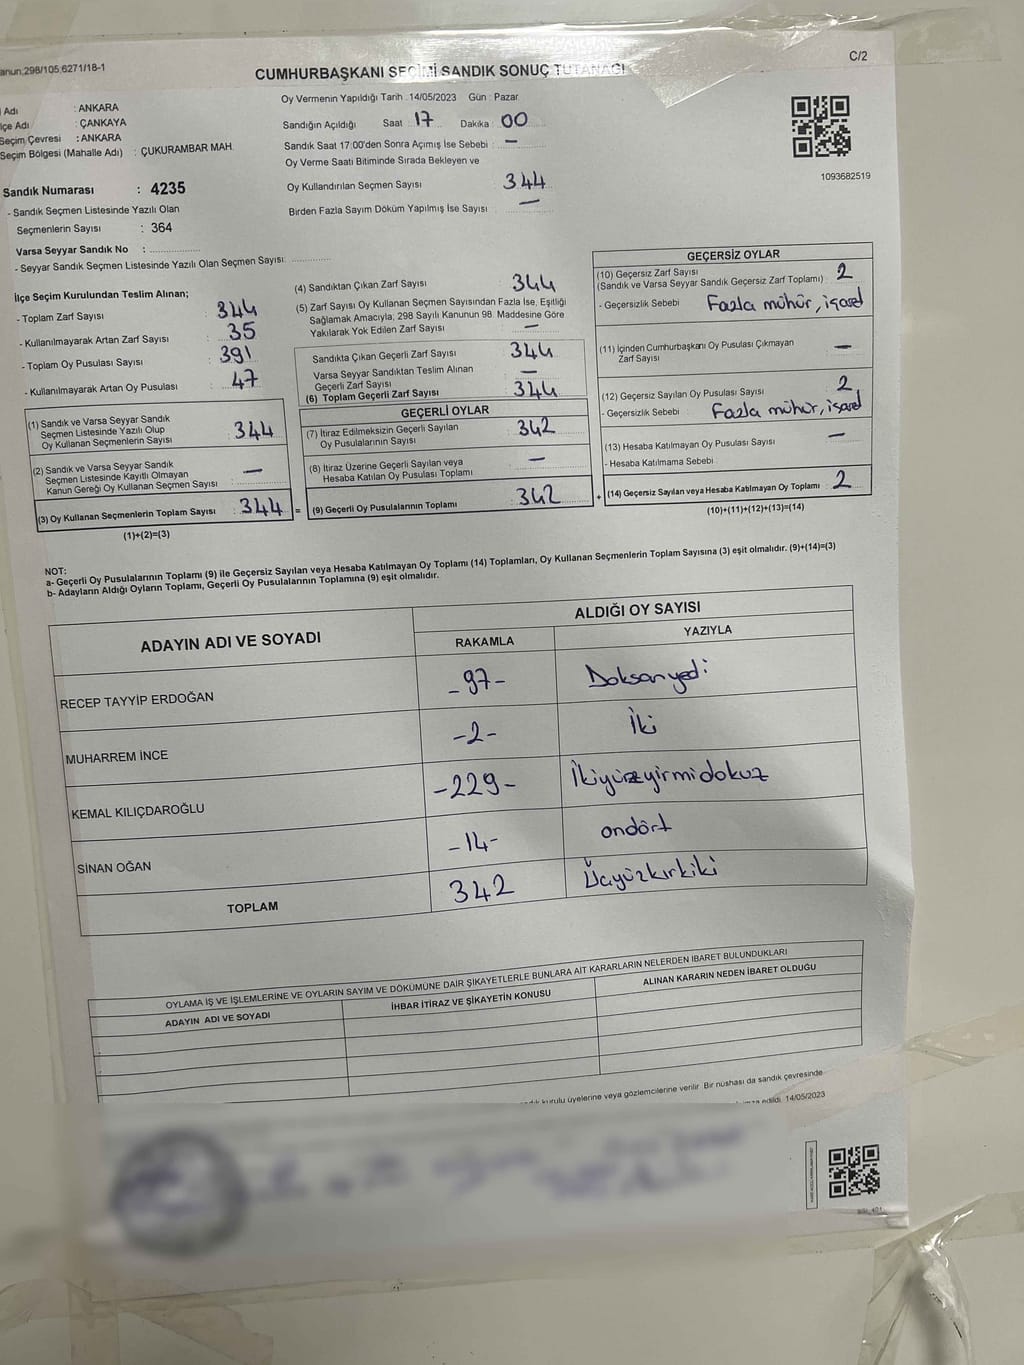 anun,298/105,6271/18-1
C/2
CUMHURBAŞKANI SEÇİMİ SANDIK SONUÇ TUTANAĞI
Adı : ANKARA
lçe Adı : ÇANKAYA
Seçim Çevresi : ANKARA
Seçim Bölgesi (Mahalle Adı) : ÇUKURAMBAR MAH.
Sandık Numarası : 4235
- Sandık Seçmen Listesinde Yazılı Olan
Seçmenlerin Sayısı : 364
Varsa Seyyar Sandık No :
- Seyyar Sandık Seçmen Listesinde Yazılı Olan Seçmen Sayısı:
Oy Vermenin Yapıldığı Tarih : 14/05/2023 Gün : Pazar
Sandığın Açıldığı Saat 17 Dakika 00
Sandık Saat 17:00'den Sonra Açımış İse Sebebi : —
Oy Verme Saati Bitiminde Sırada Bekleyen ve
Oy Kullandırılan Seçmen Sayısı 344
Birden Fazla Sayım Döküm Yapılmış İse Sayısı —
1093682519
İlçe Seçim Kurulundan Teslim Alınan;
- Toplam Zarf Sayısı : 344
- Kullanılmayarak Artan Zarf Sayısı : 35
- Toplam Oy Pusulası Sayısı : 391
- Kullanılmayarak Artan Oy Pusulası : 47
(1) Sandık ve Varsa Seyyar Sandık
Seçmen Listesinde Yazılı Olup
Oy Kullanan Seçmenlerin Sayısı : 344
(2) Sandık ve Varsa Seyyar Sandık
Seçmen Listesinde Kayıtlı Olmayan
Kanun Gereği Oy Kullanan Seçmen Sayısı : —
(3) Oy Kullanan Seçmenlerin Toplam Sayısı : 344 =
(1)+(2)=(3)
(4) Sandıktan Çıkan Zarf Sayısı 344
(5) Zarf Sayısı Oy Kullanan Seçmen Sayısından Fazla İse, Eşitliği
Sağlamak Amacıyla; 298 Sayılı Kanunun 98. Maddesine Göre
Yakılarak Yok Edilen Zarf Sayısı —
Sandıkta Çıkan Geçerli Zarf Sayısı 344
Varsa Seyyar Sandıktan Teslim Alınan
Geçerli Zarf Sayısı —
(6) Toplam Geçerli Zarf Sayısı 344
GEÇERLİ OYLAR
(7) İtiraz Edilmeksizin Geçerli Sayılan
Oy Pusulalarının Sayısı 342
(8) İtiraz Üzerine Geçerli Sayılan veya
Hesaba Katılan Oy Pusulası Toplamı —
(9) Geçerli Oy Pusulalarının Toplamı 342 +
GEÇERSİZ OYLAR
(10) Geçersiz Zarf Sayısı
(Sandık ve Varsa Seyyar Sandık Geçersiz Zarf Toplamı) 2
- Geçersizlik Sebebi Fazla mühür, işaret
(11) İçinden Cumhurbaşkanı Oy Pusulası Çıkmayan
Zarf Sayısı —
(12) Geçersiz Sayılan Oy Pusulası Sayısı 2
- Geçersizlik Sebebi Fazla mühür, işaret
(13) Hesaba Katılmayan Oy Pusulası Sayısı —
- Hesaba Katılmama Sebebi
(14) Geçersiz Sayılan veya Hesaba Katılmayan Oy Toplamı 2
(10)+(11)+(12)+(13)=(14)
NOT:
a- Geçerli Oy Pusulalarının Toplamı (9) ile Geçersiz Sayılan veya Hesaba Katılmayan Oy Toplamı (14) Toplamları, Oy Kullanan Seçmenlerin Toplam Sayısına (3) eşit olmalıdır. (9)+(14)=(3)
b- Adayların Aldığı Oyların Toplamı, Geçerli Oy Pusulalarının Toplamına (9) eşit olmalıdır.
ADAYIN ADI VE SOYADI ALDIĞI OY SAYISI
RAKAMLA YAZIYLA
RECEP TAYYİP ERDOĞAN -97- Doksanyedi
MUHARREM İNCE -2- İki
KEMAL KILIÇDAROĞLU -229- İkiyüzyirmidokuz
SİNAN OĞAN -14- ondört
TOPLAM 342 Üçyüzkırkiki
OYLAMA İŞ VE İŞLEMLERİNE VE OYLARIN SAYIM VE DÖKÜMÜNE DAİR ŞİKAYETLERLE BUNLARA AİT KARARLARIN NELERDEN İBARET BULUNDUKLARI
ADAYIN ADI VE SOYADI İHBAR İTİRAZ VE ŞİKAYETİN KONUSU ALINAN KARARIN NEDEN İBARET OLDUĞU
kurulu üyelerine veya gözlemcilerine verilir. Bir nüshası da sandık çevresinde
edildi. 14/05/2023